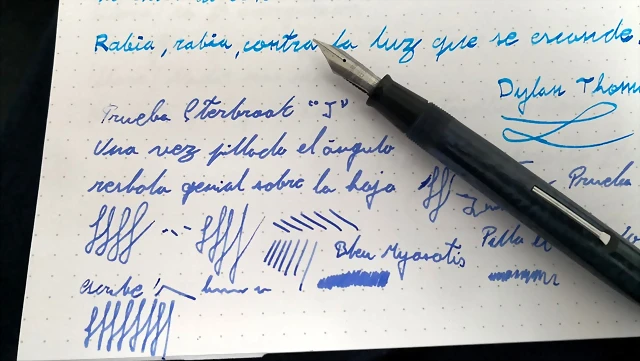 Rabia, rabia, contra la luz que se esconde.
Dylan Thom
Prueba Esterbrook "J"
Una vez pillado el ángulo
resbala genial sobre la hoja
Prueba
Bleu Myosotis
Pilla el
escribe